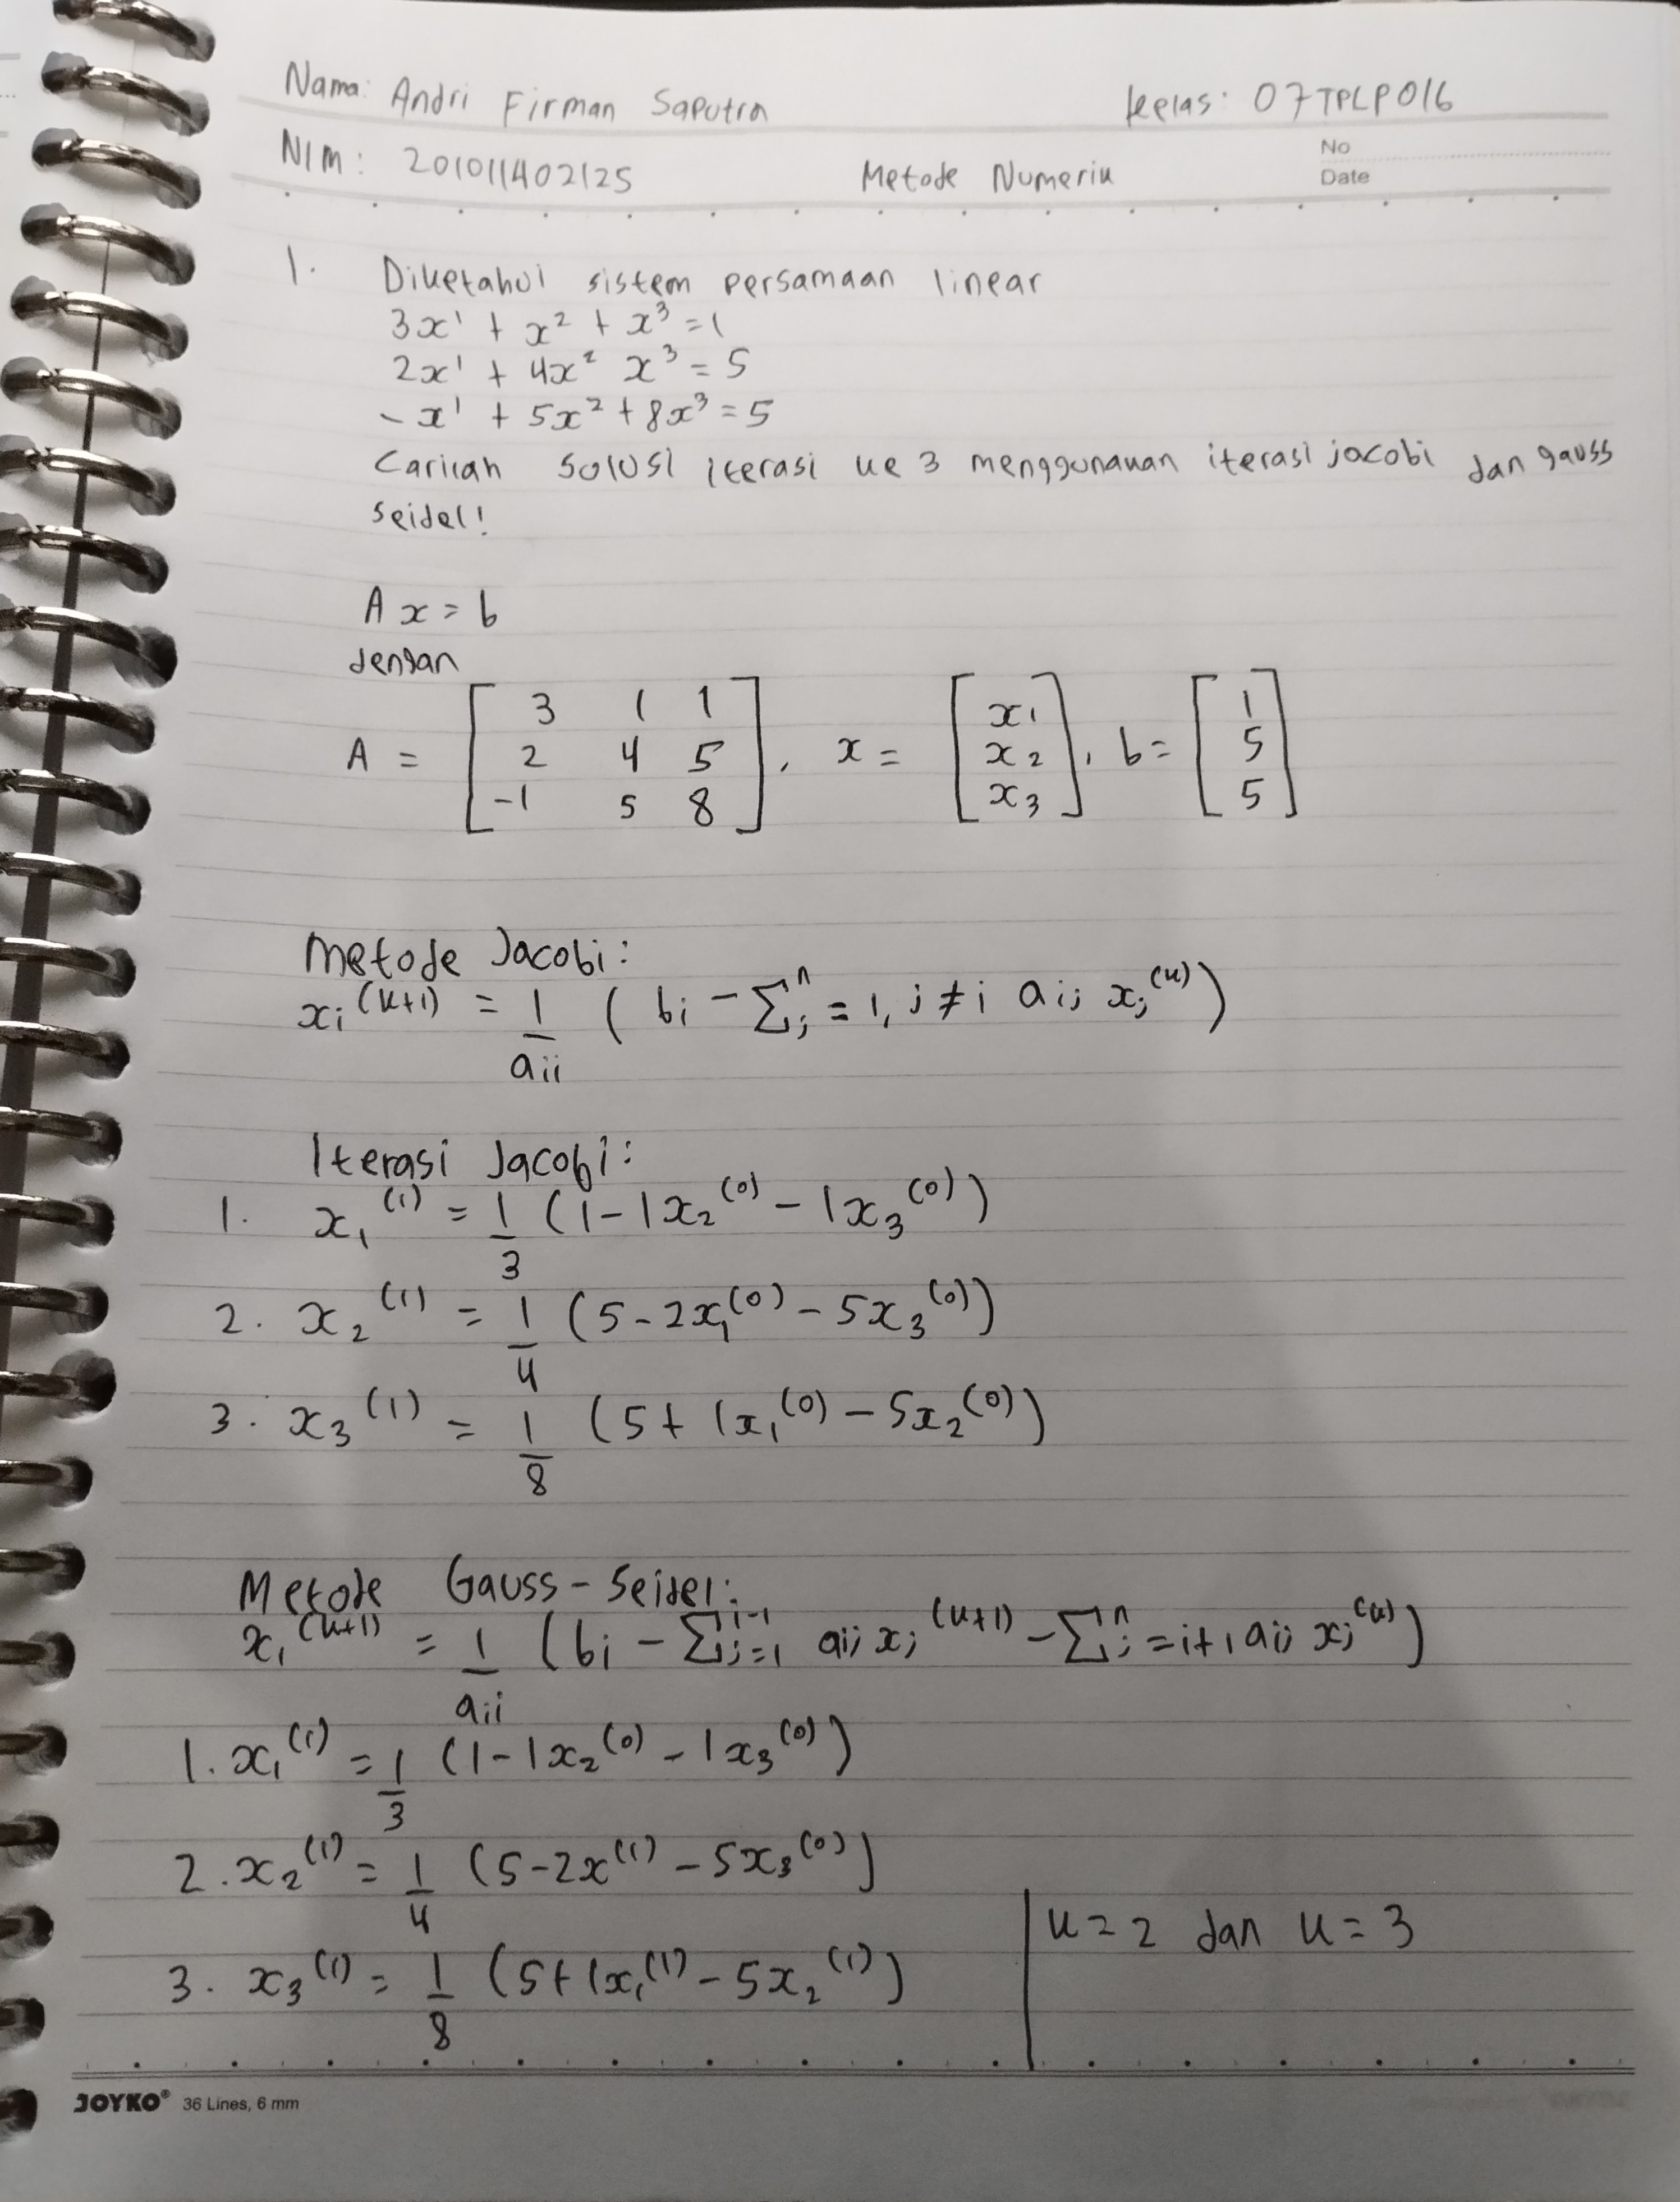 Nama: Andri Firman Saputra
Kelas: 07TPLP016
NIM: 201011402125
Metode Numerik
No
Date
1. Diketahui sistem persamaan linear
3x¹ + x² + x³ = 1
2x¹ + 4x² x³ = 5
-x¹ + 5x² + 8x³ = 5
Carilah solusi iterasi ke 3 menggunakan iterasi jacobi dan gauss
seidel!
A x = b
dengan
A = [3 1 1; 2 4 5; -1 5 8], x = [x1; x2; x3], b = [1; 5; 5]
Metode Jacobi:
xi^(k+1) = 1/aii ( bi - Σj^n = 1, j ≠ i aij xj^(k))
Iterasi Jacobi:
1. x₁^(1) = 1/3 (1 - 1x₂^(0) - 1x₃^(0))
2. x₂^(1) = 1/4 (5 - 2x₁^(0) - 5x₃^(0))
3. x₃^(1) = 1/8 (5 + 1x₁^(0) - 5x₂^(0))
Metode Gauss-Seidel:
x₁^(k+1) = 1/aii (bi - Σj=1^i-1 aij xj^(k+1) - Σj^n = i+1 aij xj^(k))
1. x₁^(1) = 1/3 (1 - 1x₂^(0) - 1x₃^(0))
2. x₂^(1) = 1/4 (5 - 2x^(1) - 5x₃^(0))
3. x₃^(1) = 1/8 (5 + 1x₁^(1) - 5x₂^(1))
k = 2 dan k = 3
JOYKO® 36 Lines, 6 mm